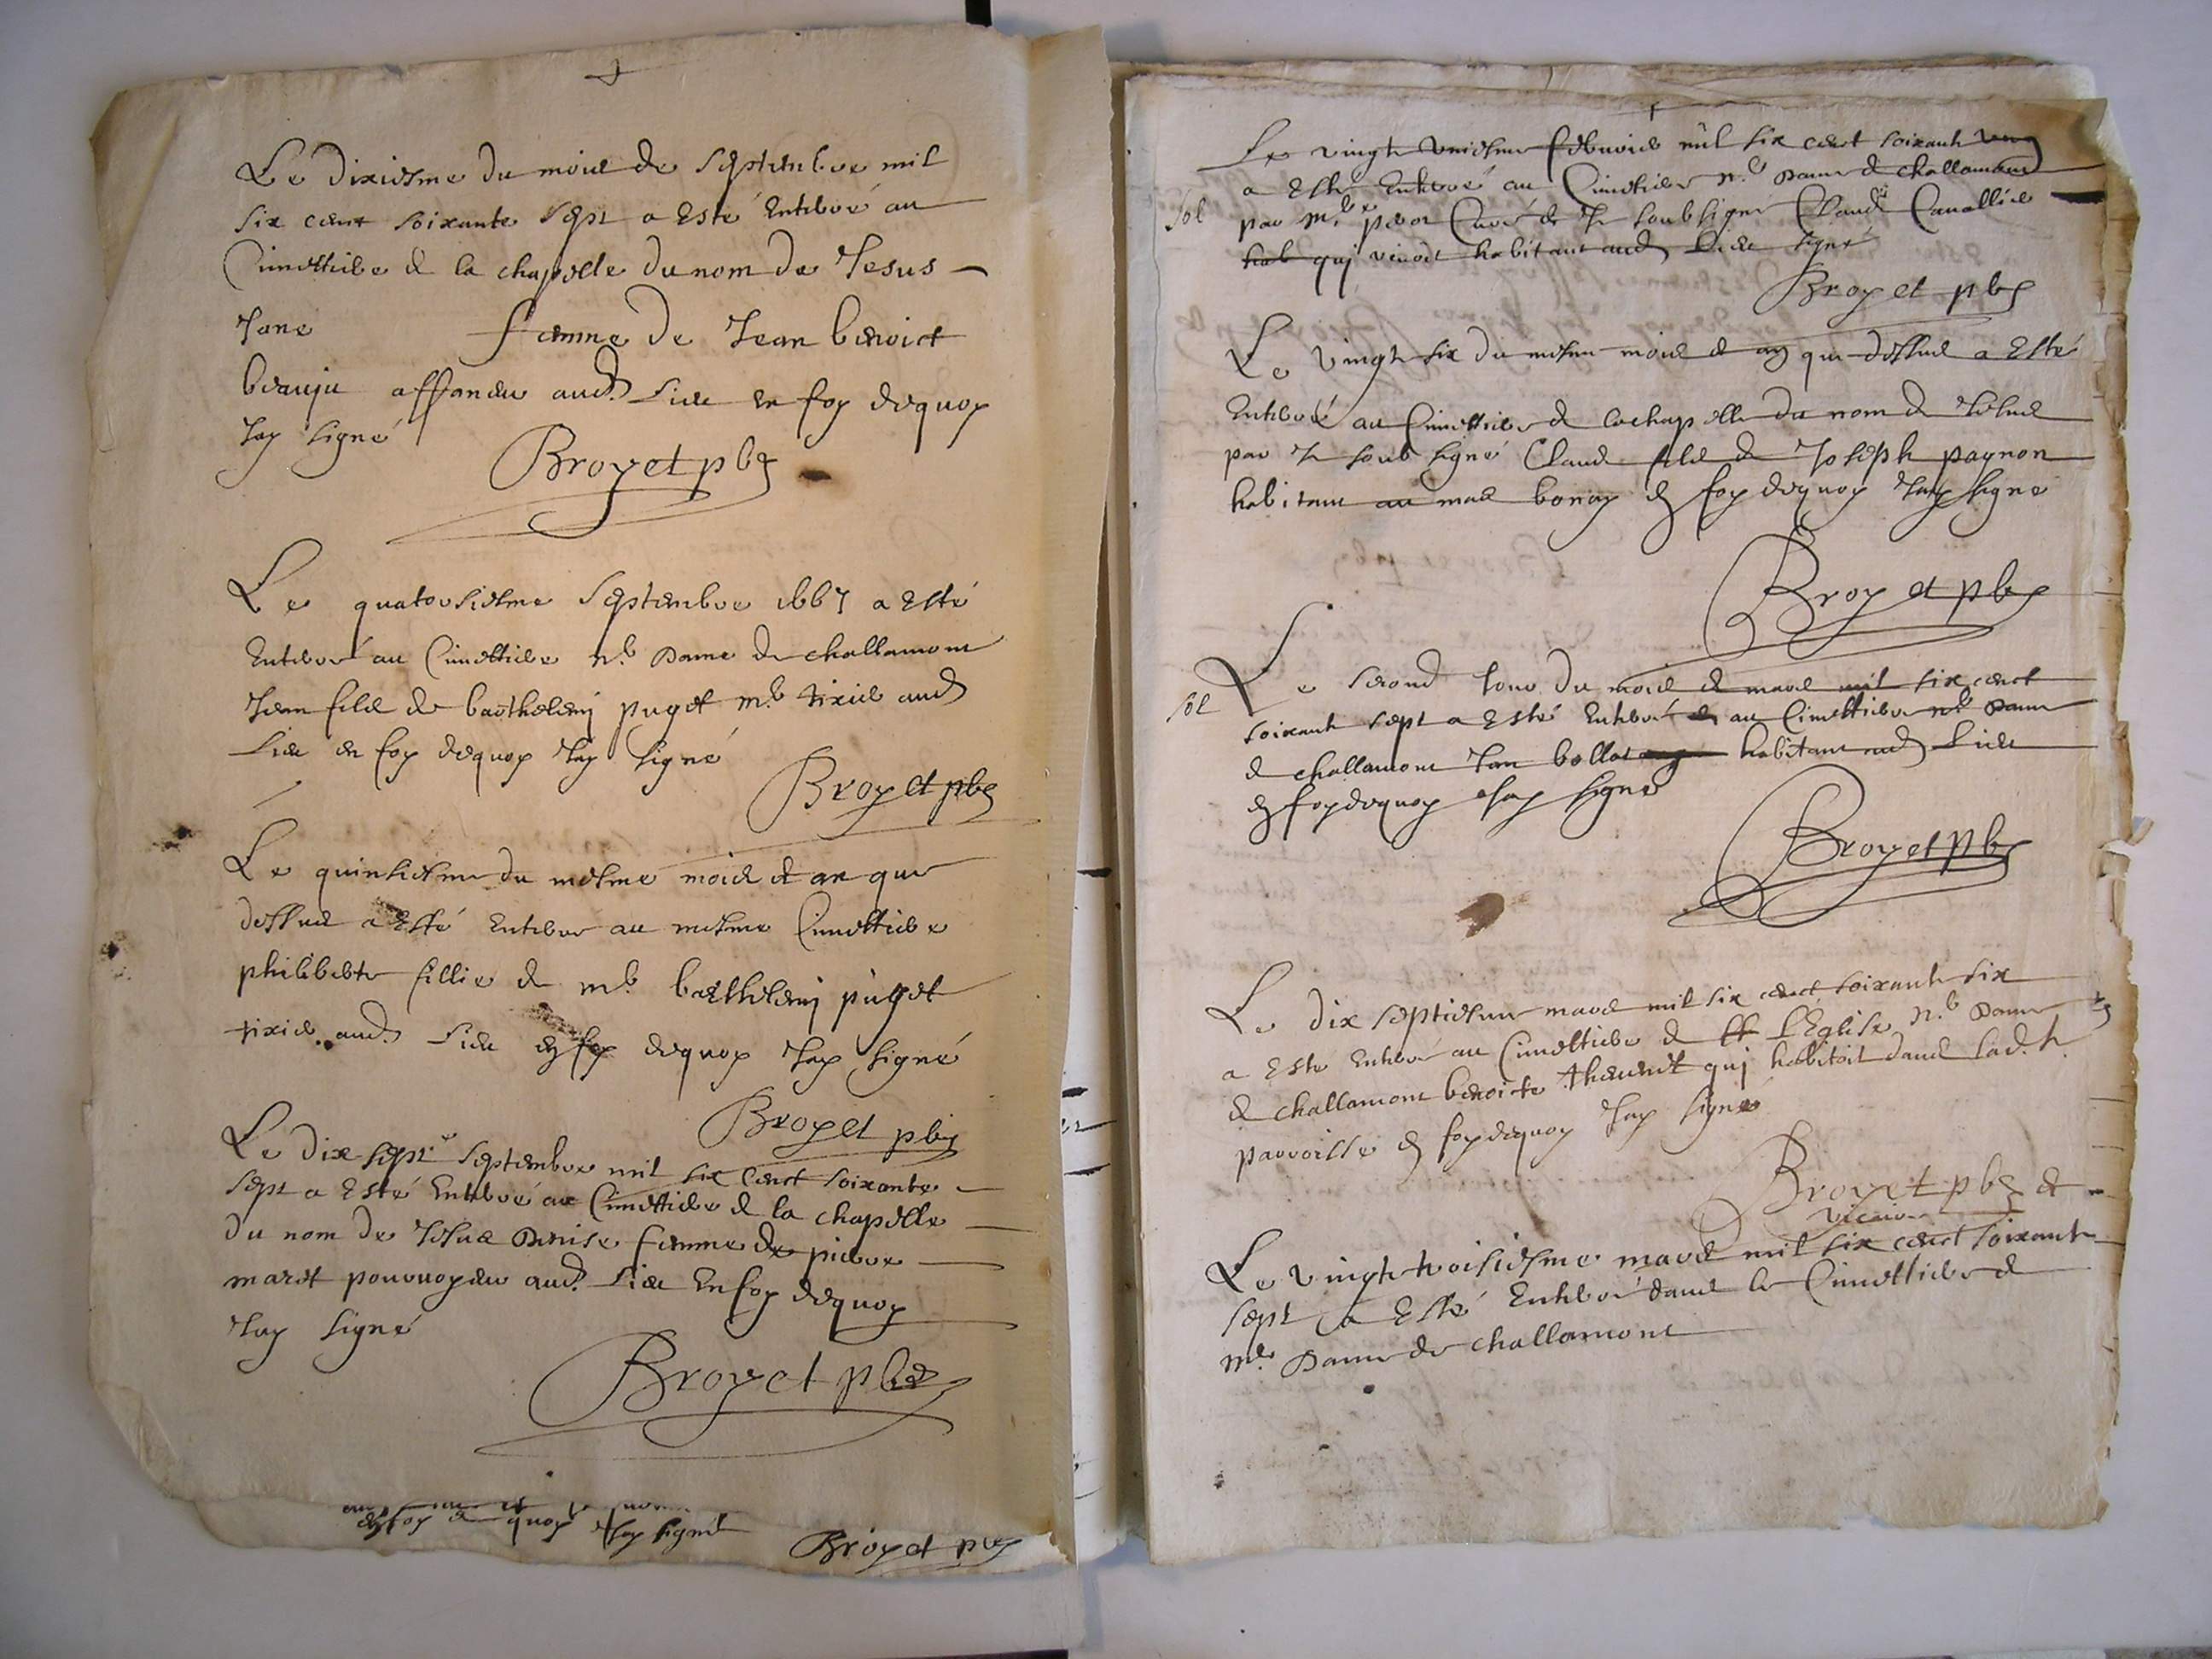 Le dixiesme du mois de septembre mil
six cent soixante sept a esté enterré au
Cimettiere de la chapelle du nom de Jesus
Jane femme de Jean benoict
beauju affaneur aud. lieu en foy dequoy
Jay signé
Broyet pbr
Le quatorsiesme septembre 1667 a esté
enterré au Cimettiere n.e Dame de challamont
Jean fils de barthelemj puget m.e tixier aud.
lieu en foy dequoy Jay signé
Broyet pbr
Le quinsiesme du mesme mois et an que
dessus a esté enterré au mesme Cimettiere
philiberte fillie de m.e barthelemj puget
tixier aud. lieu en foy dequoy Jay signé
Broyet pbr
Le dix sept.e septembre mil six cent soixante
sept a esté enterré au Cimettiere de la chapelle
du nom de Jesus Denise femme de pierre
maret pourvoyeur aud. lieu en foy dequoy
Jay signé
Broyet pbr
en foy de quoy Jay signé
Broyet pbr
Le vingt uniesme febvrier mil six cent soixante
a esté enterré au Cimetiere n.e Dame de challamont
sol
par m.re Curé & Je soubsigné Claude Cavallier
hab qui vivoit habitant aud. lieu signé
Broyet pbr
Le vingt six du mesme mois et an que dessus a esté
enterré au Cimettiere de la chapelle du nom de Jesus
par Je soub signé Claude fils de Joseph pagnon
habitant au mas bonay en foy dequoy Jay signé
Broyet pbr
sol
Le second Jour du mois de mars mil six cent
soixante sept a esté enterré au Cimettiere n.e Dame
de challamont Jean bollat habitant aud. lieu
en foy dequoy Jay signé
Broyet pbr
Le dix septiesme mars mil six cent soixante six
a esté enterré au Cimettiere de l'Eglise n.e Dame
de challamont benoiste thevenet qui habitoit dans lad.te
parroisse en foy dequoy Jay signé
Broyet pbr et
vicaire
Le vingt troisiesme mars mil six cent soixante
sept a esté enterré dans le Cimettiere de
n.e Dame de challamont